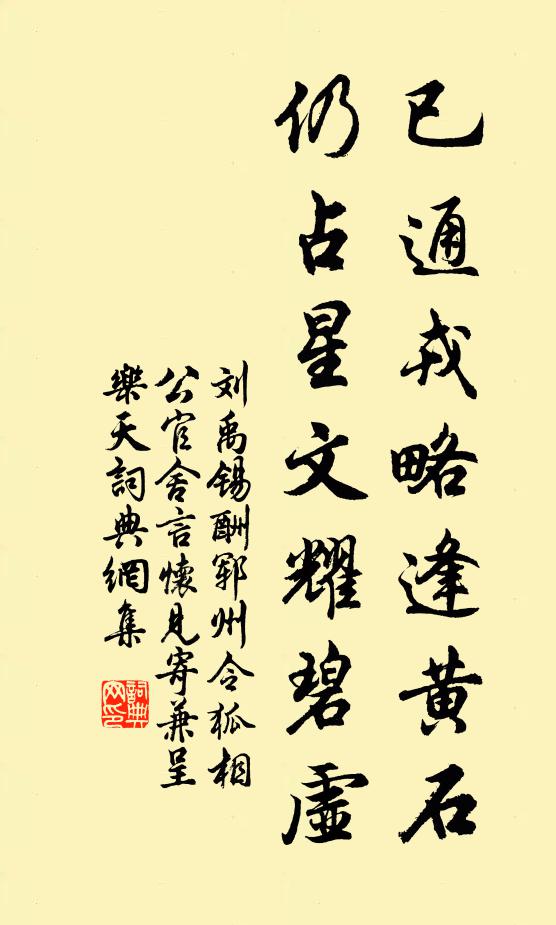 已通戎略逢黄石
仍占星文耀碧虚
刘禹锡酬郓州令狐相
公官舍言懷见寄兼呈
樂天詞典網集
詞典网印